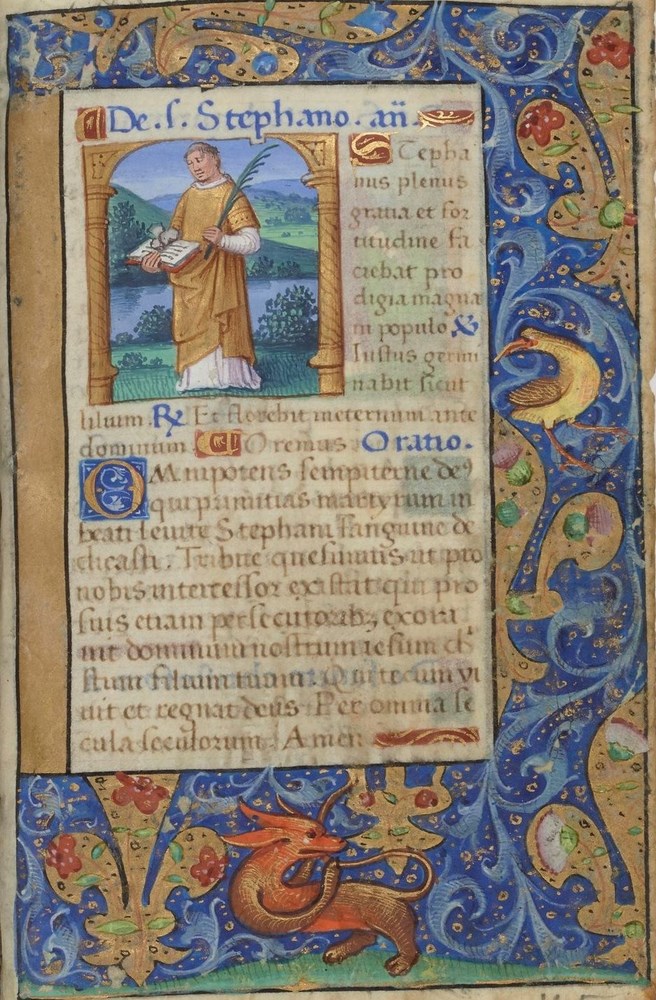 De . s . Stephano . añ .
Stepha
nus plenus
gratia et for
titudine fa
ciebat pro
digia magna
in populo ℣
Iustus germi
nabit sicut
lilium . ℟ Et florebit ineternum ante
dominum Oremus Oratio .
OMnipotens sempiterne de⁹
qui primitias martyrum in
beati leuite Stephani sanguine de
dicasti . Tribue quesumus ut pro
nobis intercessor existat qui pro
suis etiam persecutoribꝫ exora
uit dominum nostrum iesum ch̄
stum filium tuum . Qui tecum vi
uit et regnat deus Per omnia se
cula seculorum . Amen